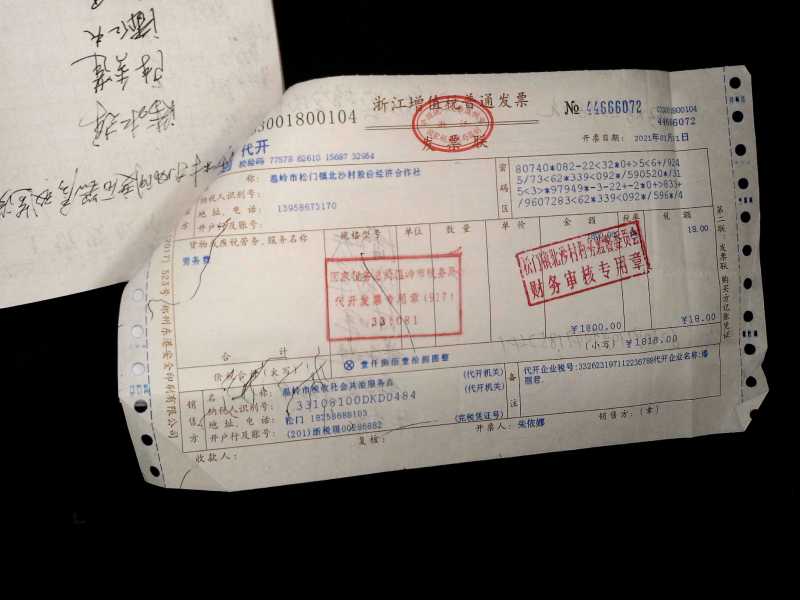 浙江增值税普通发票
发票联
3001800104
№ 44666072
033001800104
44666072
开票日期: 2021年01月11日
代开
校验码 77578 62610 15687 32964
称: 温岭市松门镇北沙村股份经济合作社
纳税人识别号:
地址、电话: 13958673170
开户行及账号:
密码区
80740*082-22<32*0+>5<6+/924
5/73<62*339<092*/590520*/31
5<3>*97949*-3-22+-2*0+>835+
/9607283<62*339<092*/596*/4
货物或应税劳务、服务名称 规格型号 单位 数量 单价 金额 税率 税额
劳务费
18.00
国家税务总局温岭市税务局
代开发票专用章(917)
331081
松门镇北沙村村务监督委员会
财务审核专用章
合计
¥1800.00
¥18.00
价税合计(大写)
ⓧ壹仟捌佰壹拾捌圆整
(小写) ¥1818.00
销售方
名称: 温岭市税收社会共治服务点 (代开机关)
纳税人识别号: 33108100DKD0484 (代开机关)
地址、电话: 松门 18258688103
开户行及账号: (完税凭证号)
备注
代开企业税号:
代开企业名称:潘
丽君
收款人:
复核:
开票人: 朱依娜
销售方:(章)
第二联:发票联 购买方记账凭证